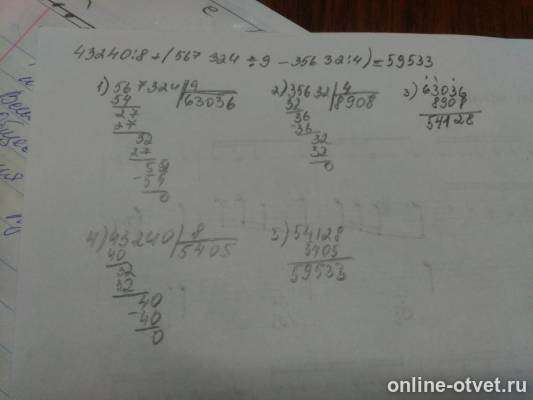 43240:8+(567 324 ÷ 9 - 356 32:4)=59533
1) 567324 | 9
63036
54
27
27
32
27
54
-54
0
2) 35632 | 4
8908
32
36
36
32
32
0
3) 63036
8908
54128
4) 43240 | 8
5405
40
32
32
40
-40
0
5) 54128
5405
59533
online-otvet.ru